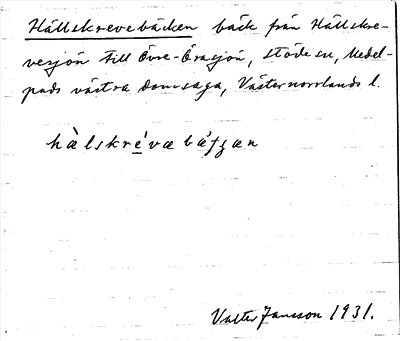 Hällskrevebäcken bäck från Hällskre-
vesjön till Övre-Öratjön, Stöde sn, Medel-
pads västra domsaga, Västernorrlands l.
Valter Jansson 1931.